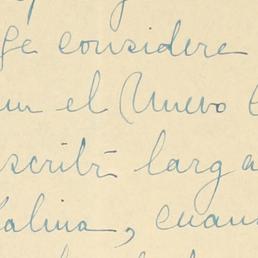 ge considere
un el Nuevo
scribí larga
alina, cuan